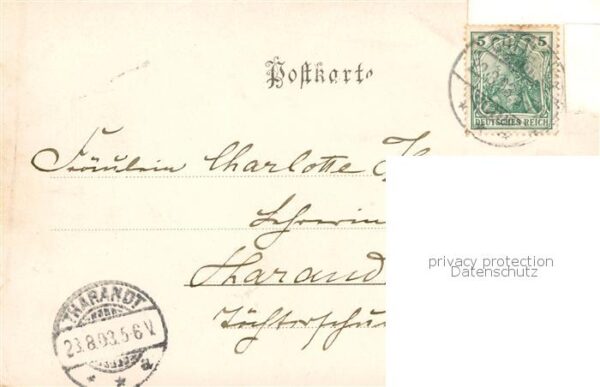 Postkarte
5 5
DEUTSCHES REICH
Fräulein Charlotte
Lehrerin
Tharand
Töchterschu
THARANDT
23.8.03.5-6V.
* * a
privacy protection
Datenschutz